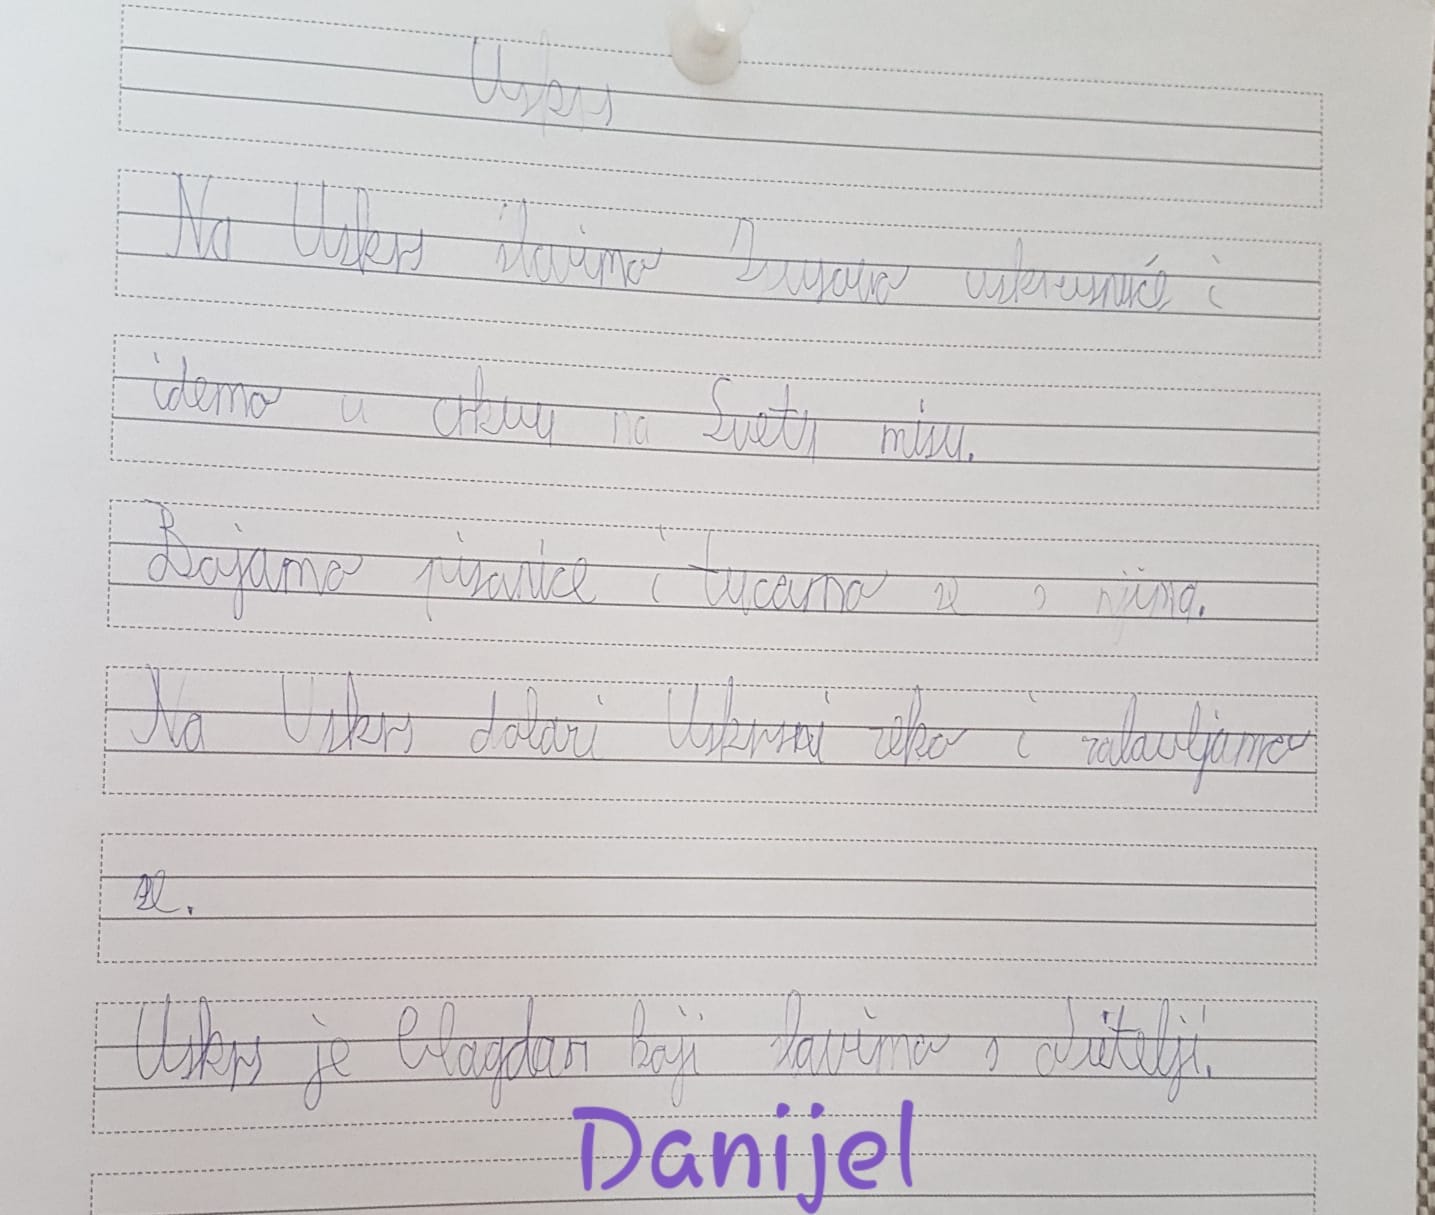 Uskrs
Na Uskrs slavimo Isusovo uskrsnuće i
idemo u crkvu na Svetu misu.
Bojamo pisanice i tucamo se s njima.
Na Uskrs dolazi Uskrsni zeko i zabavljamo
se.
Uskrs je blagdan koji slavimo s obitelji.
Danijel